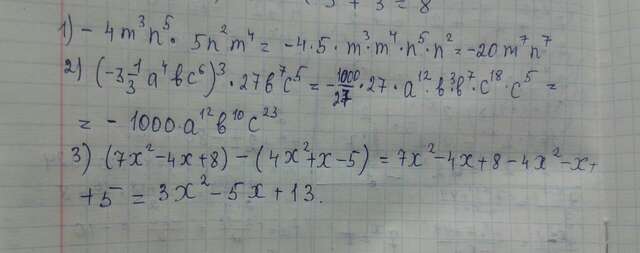 3 + 3 = 8
1) - 4m³n⁵ · 5n²m⁴ = -4·5·m³m⁴·n⁵·n² = -20m⁷n⁷
2) (-3 1/3 a⁴bc⁶)³ · 27b⁷c⁵ = - 1000/27 · 27 · a¹² · b³b⁷ · c¹⁸ · c⁵ =
= - 1000·a¹²b¹⁰c²³
3) (7x²-4x+8) - (4x²+x-5) = 7x²-4x+8-4x²-x+
+5 = 3x²-5x+13.